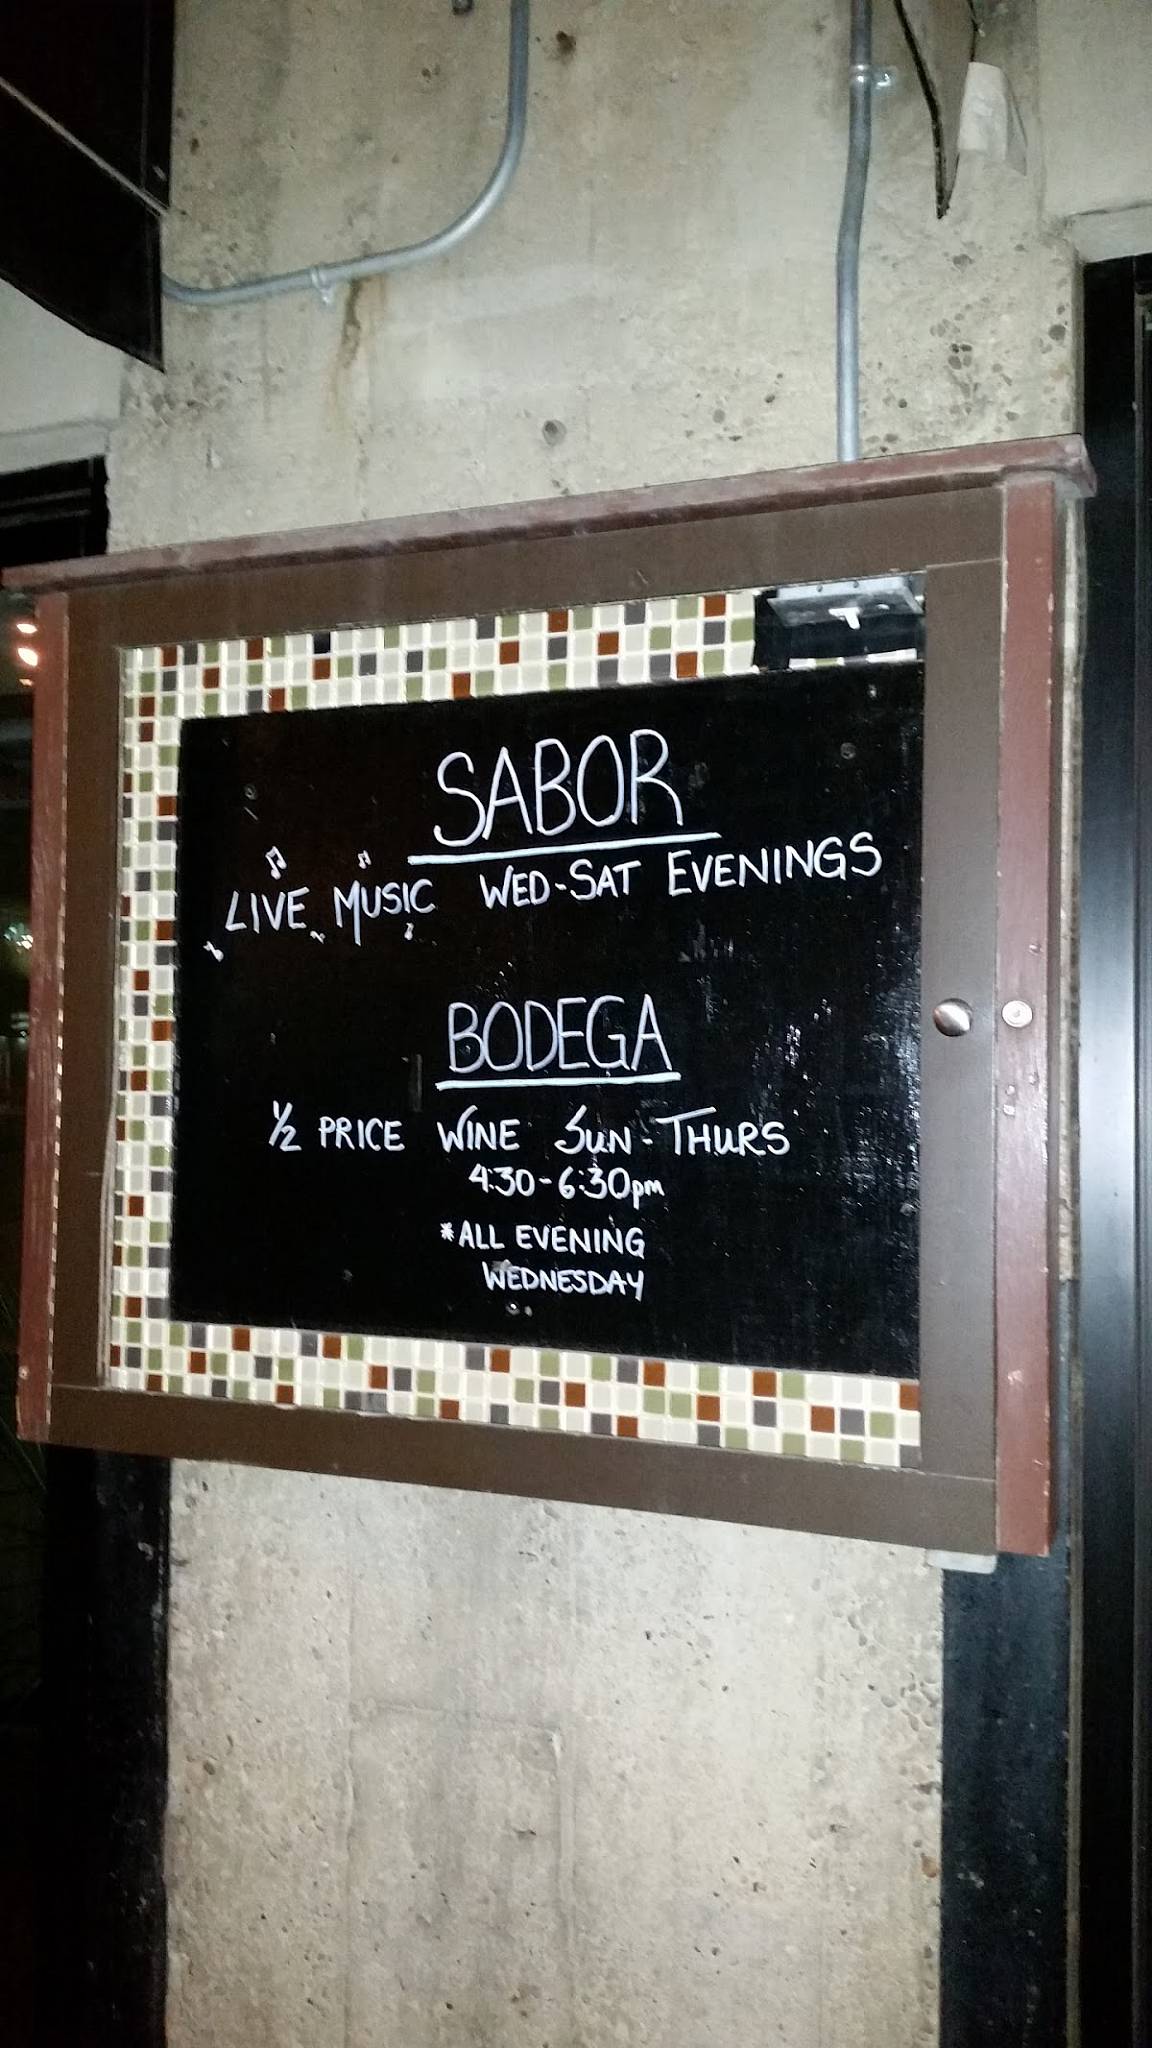 SABOR
LIVE MUSIC WED-SAT EVENINGS
BODEGA
1/2 PRICE WINE SUN-THURS
4:30-6:30pm
*ALL EVENING
WEDNESDAY